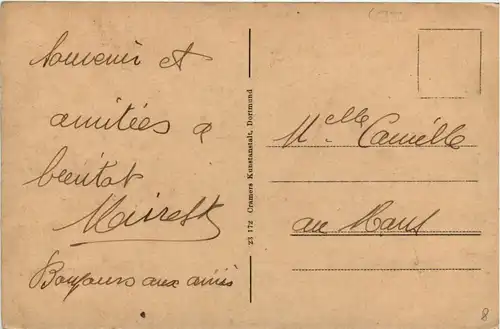 Souvenir et
amitiées a
bientot
Bonjours aux amis
23 172 Cramers Kunstanstalt, Dortmund
Melle Camille
au Mans
8